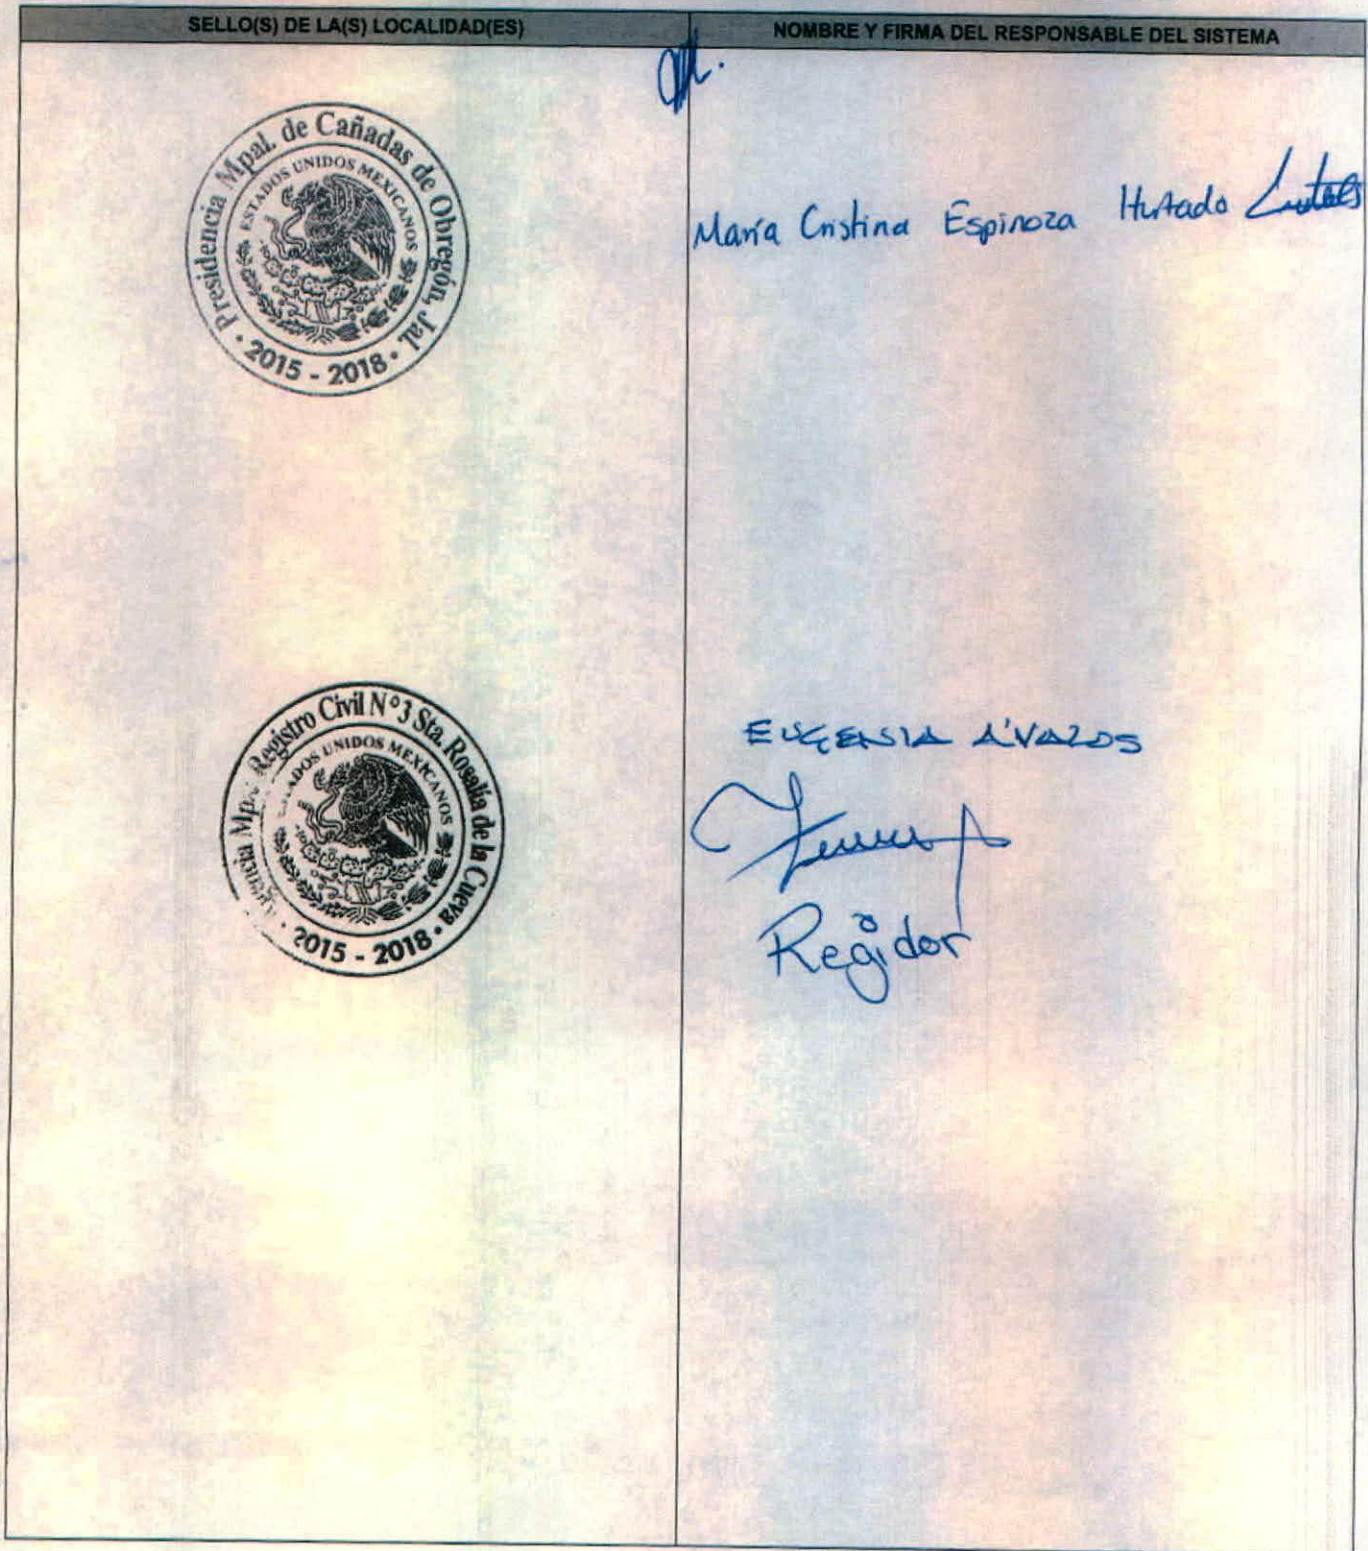 SELLO(S) DE LA(S) LOCALIDAD(ES)
NOMBRE Y FIRMA DEL RESPONSABLE DEL SISTEMA
Presidencia Mpal. de Cañadas de Obregón, Jal.
ESTADOS UNIDOS MEXICANOS
· 2015 - 2018 ·
María Cristina Espinoza Hurtado
Agencia Mpal. Registro Civil N°3 Sta. Rosalía de la Cueva
ESTADOS UNIDOS MEXICANOS
· 2015 - 2018 ·
EUGENIA ÁVALOS
Regidor